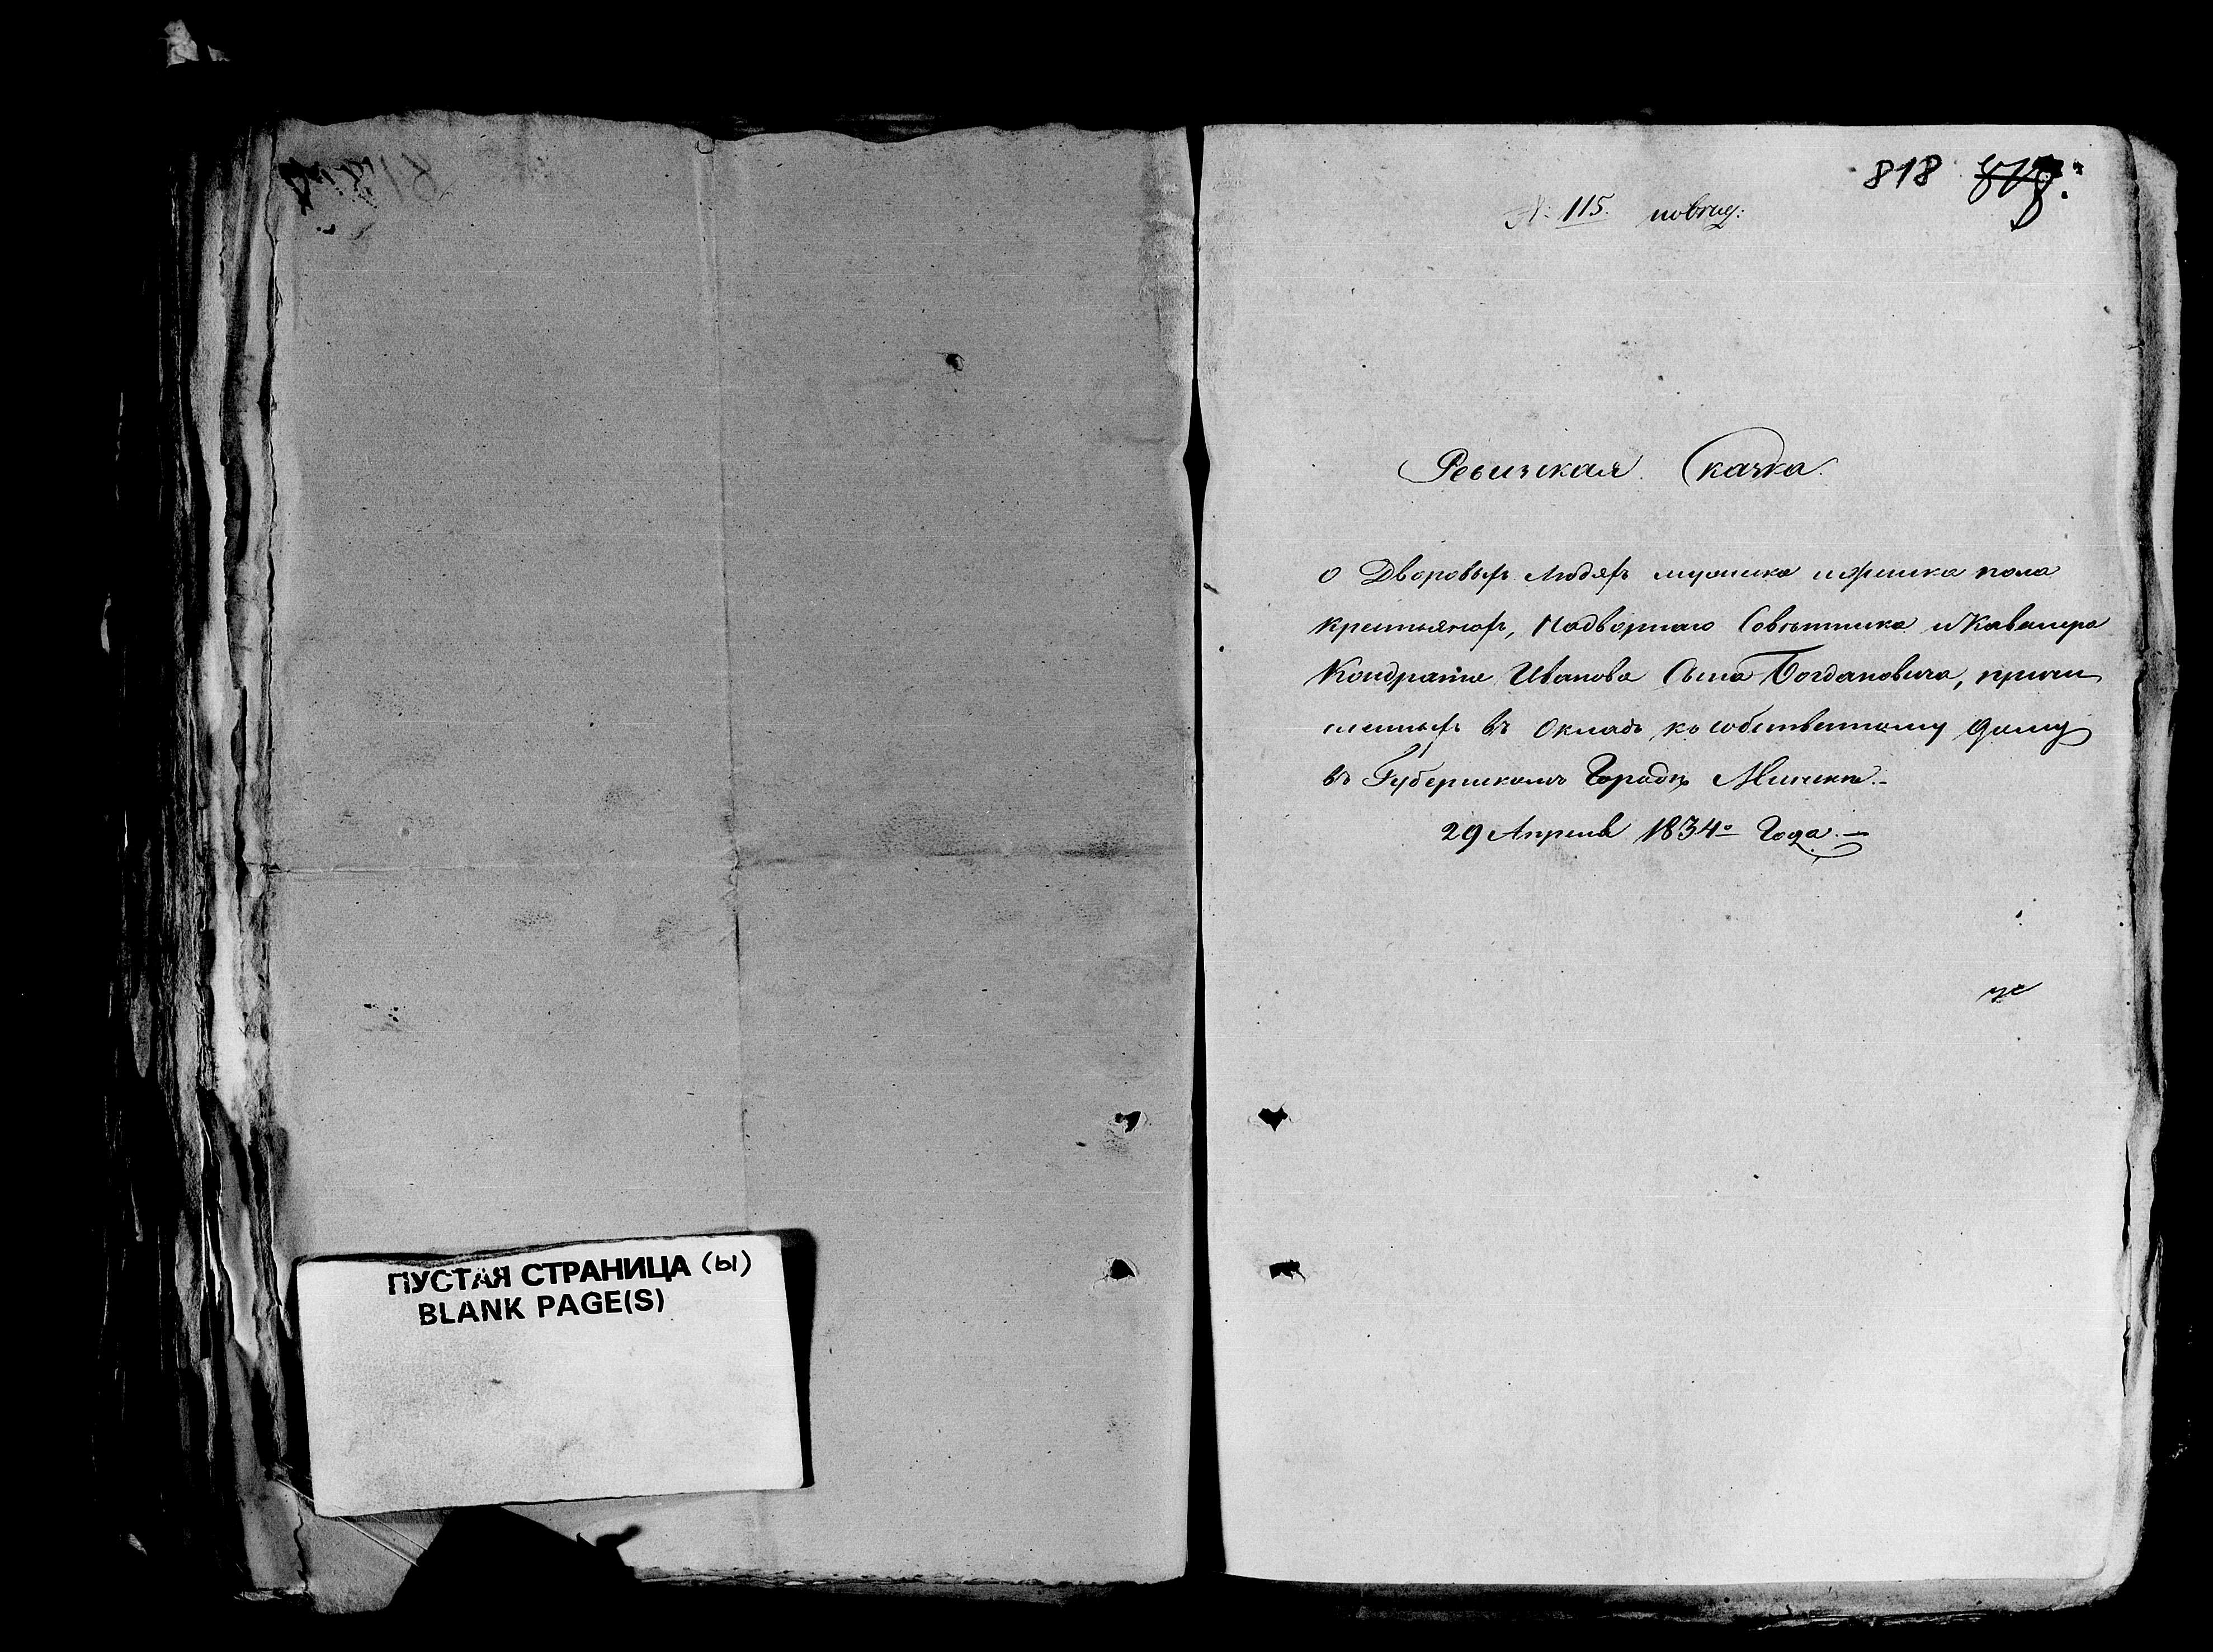 818
№ 115.
Ревизская Сказка.
о Дворовыхъ людяхъ мужска и женска пола
крестьянохъ, Надворнаго Советника и Кавалера
Кондратія Иванова Сына Богдановича, причи
сленныхъ въ Окладъ къ собственному Дому
въ Губернскомъ Городѣ Минскѣ.-
29 Апреля 1834го Года.-
ПУСТАЯ СТРАНИЦА (ы)
BLANK PAGE(S)